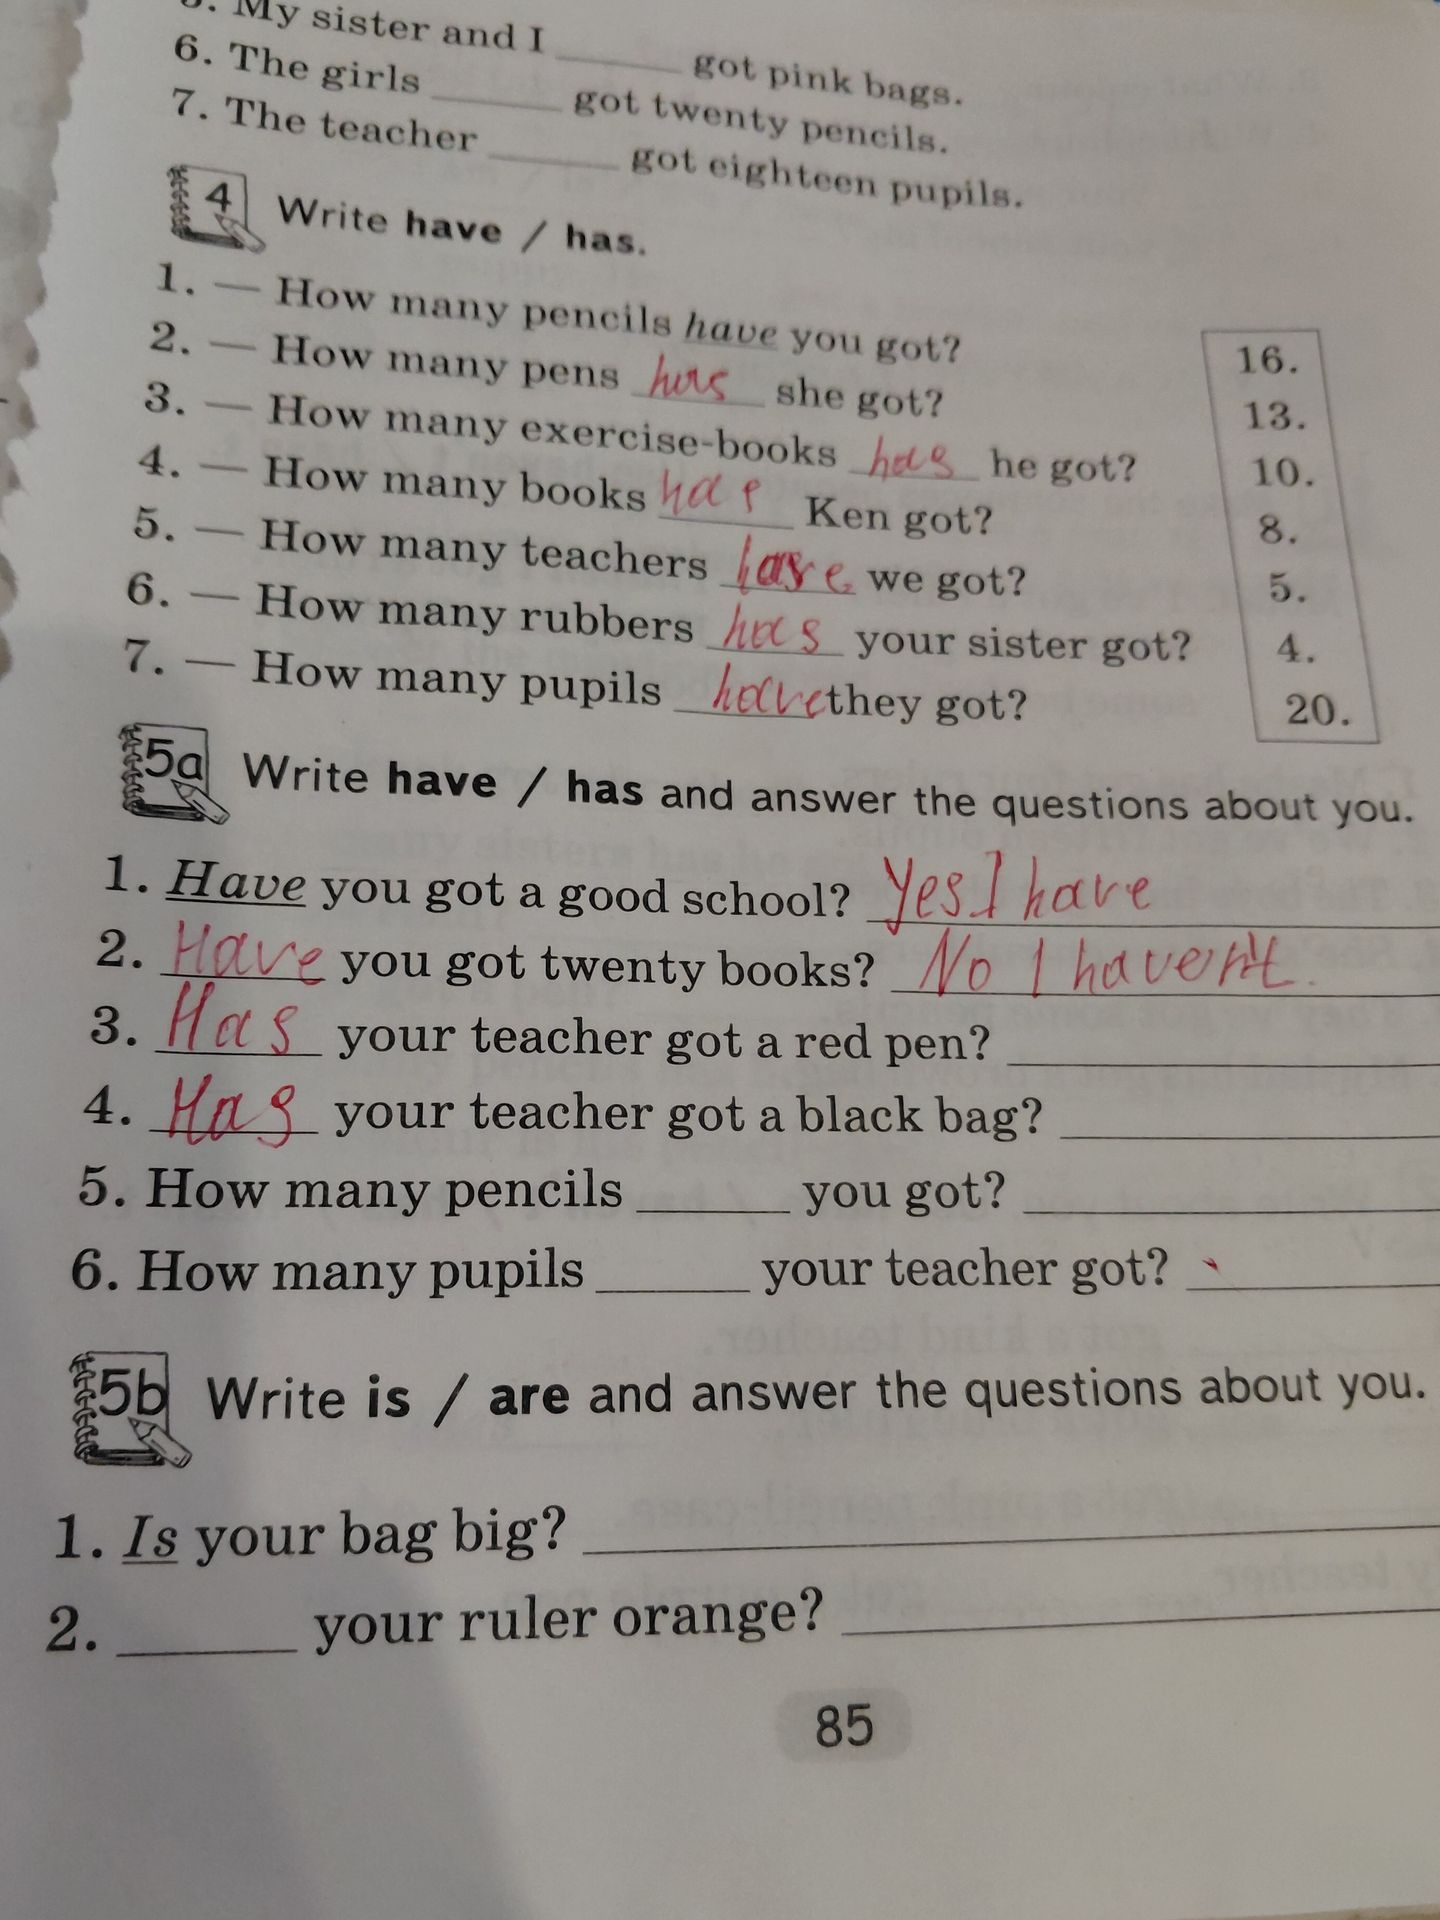 5. My sister and I ______ got pink bags.
6. The girls ______ got twenty pencils.
7. The teacher ______ got eighteen pupils.
4 Write have / has.
1. — How many pencils have you got? 16.
2. — How many pens has she got? 13.
3. — How many exercise-books has he got? 10.
4. — How many books has Ken got? 8.
5. — How many teachers have we got? 5.
6. — How many rubbers has your sister got? 4.
7. — How many pupils have they got? 20.
5a Write have / has and answer the questions about you.
1. Have you got a good school? Yes I have
2. Have you got twenty books? No I haven't.
3. Has your teacher got a red pen? ______
4. Has your teacher got a black bag? ______
5. How many pencils ______ you got? ______
6. How many pupils ______ your teacher got? ______
5b Write is / are and answer the questions about you.
1. Is your bag big? ______
2. ______ your ruler orange? ______
85